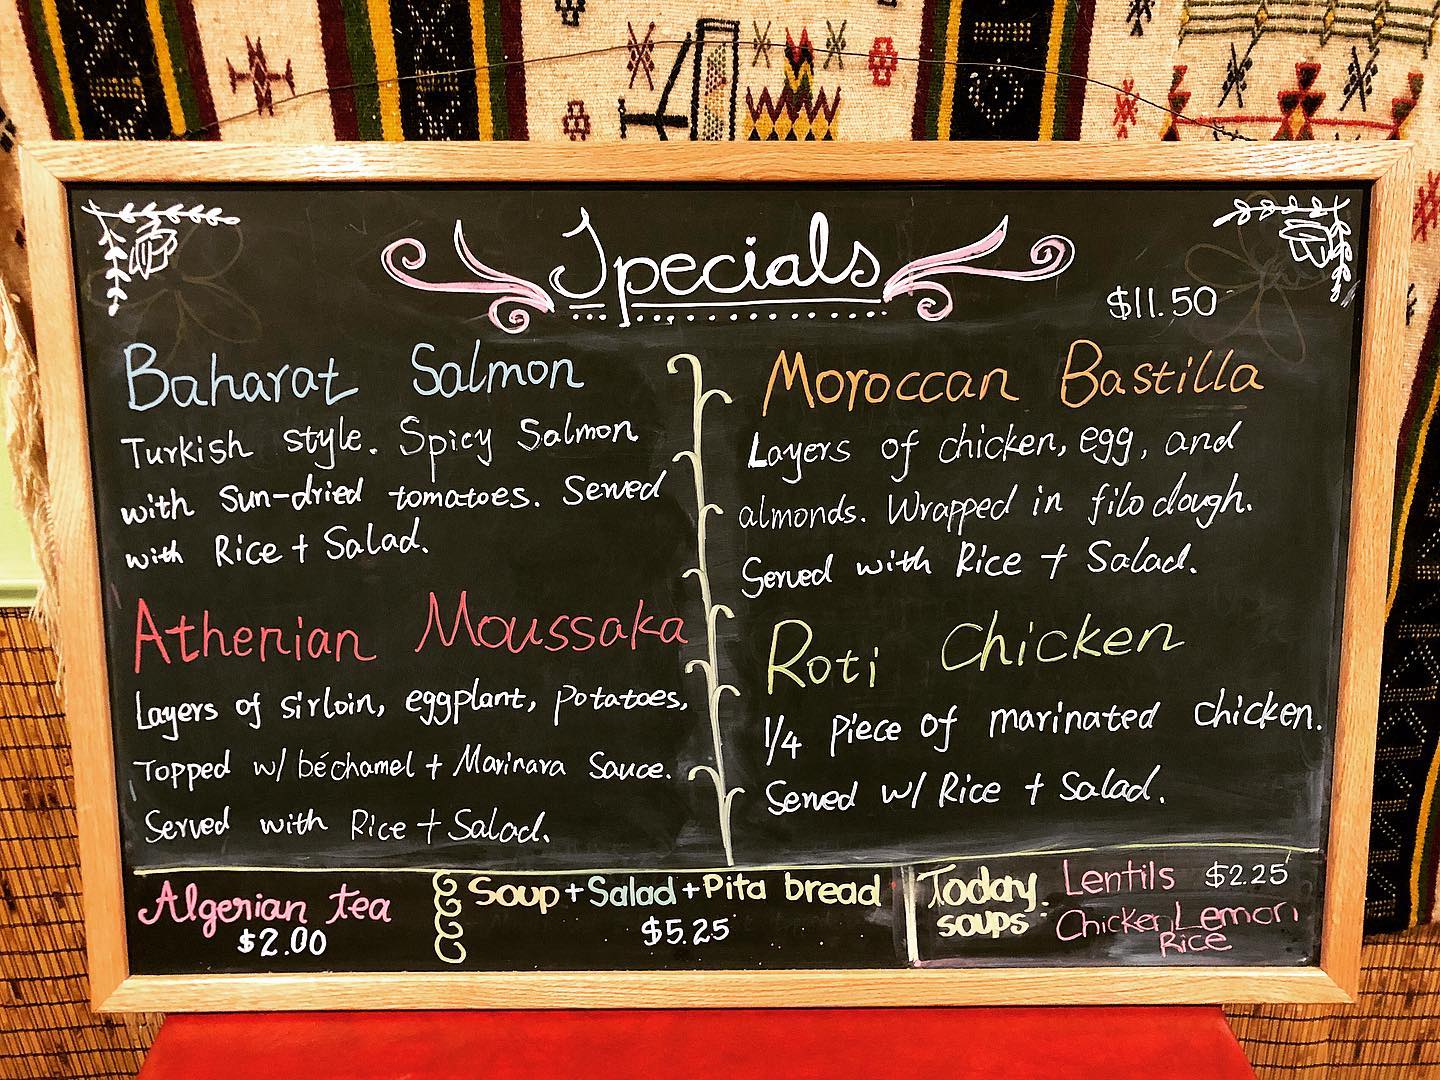 Specials
$11.50
Baharat Salmon
Turkish style. Spicy Salmon
with sun-dried tomatoes. Served
with Rice + Salad.
Athenian Moussaka
Layers of sirloin, eggplant, potatoes,
Topped w/ béchamel + Marinara Sauce.
Served with Rice + Salad.
Moroccan Bastilla
Layers of chicken, egg, and
almonds. Wrapped in filo dough.
Served with Rice + Salad.
Roti Chicken
1/4 Piece of marinated chicken.
Served w/ Rice + Salad.
Algerian tea
$2.00
Soup+Salad+Pita bread
$5.25
Today
soups:
Lentils $2.25
Chicken Lemon
Rice